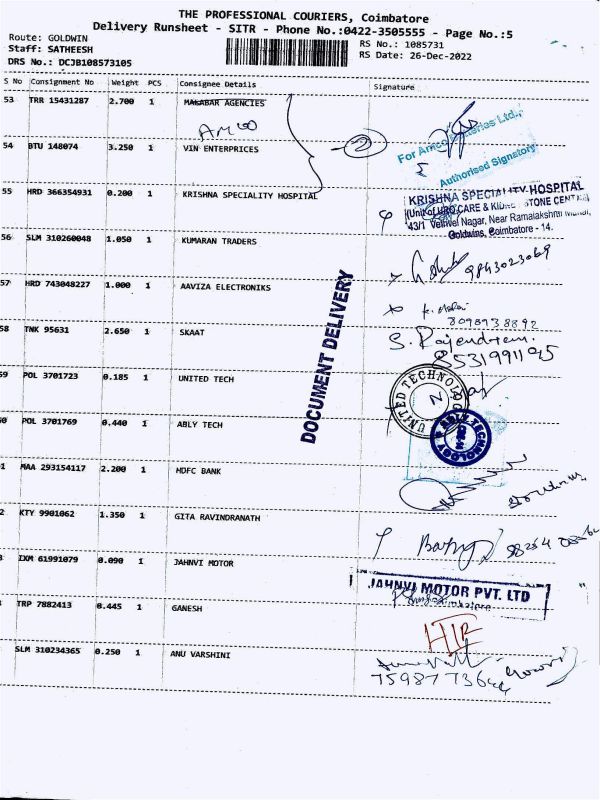 THE PROFESSIONAL COURIERS, Coimbatore
Delivery Runsheet - SITR - Phone No.:0422-3505555 - Page No.:5
Route: GOLDWIN
Staff: SATHEESH
DRS No.: DCJB108573105
RS No.: 1085731
RS Date: 26-Dec-2022
S No Consignment No Weight PCS Consignee Details Signature
53 TRR 15431287 2.700 1 MALABAR AGENCIES
AMCO
2
For Amco Batteries Ltd.,
Authorised Signatory
54 BTU 148074 3.250 1 VIN ENTERPRICES
55 HRD 366354931 0.200 1 KRISHNA SPECIALITY HOSPITAL
KRISHNA SPECIALITY HOSPITAL
(Unit of URO CARE & KIDNEY STONE CENTRE)
43/1 Vellivel Nagar, Near Ramalakshmi Mahal,
Goldwins, Coimbatore - 14.
56 SLM 310260048 1.050 1 KUMARAN TRADERS
9843023069
57 HRD 743048227 1.000 1 AAVIZA ELECTRONIKS
8098738892
DOCUMENT DELIVERY
58 TNK 95631 2.650 1 SKAAT
S. Rajendran.
8531991195
59 POL 3701723 0.185 1 UNITED TECH
UNITED TECHNOLOGY
0 POL 3701769 0.440 1 ABLY TECH
ABLY TECHNOLOGY
1 MAA 293154117 2.200 1 HDFC BANK
2 KTY 9901062 1.350 1 GITA RAVINDRANATH
3 IXM 61991079 0.090 1 JAHNVI MOTOR
JAHNVI MOTOR PVT. LTD
Coimbatore
TRP 7882413 0.445 1 GANESH
SLM 310234365 0.250 1 ANU VARSHINI
Gowri